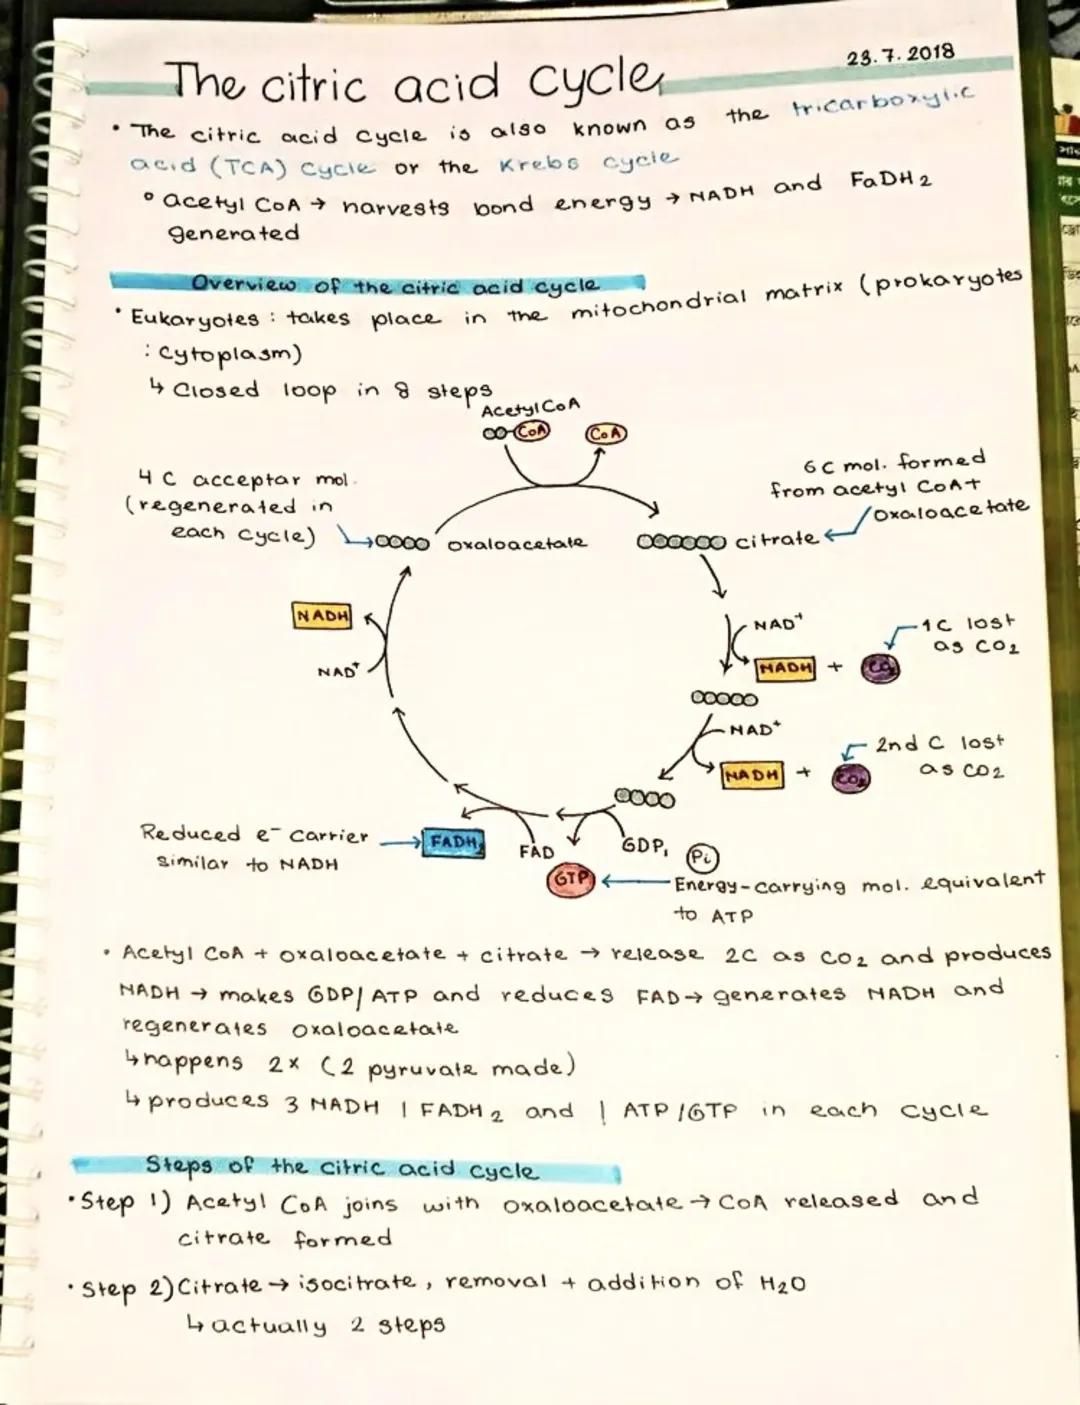 The citric acid cycle
23.7.2018
• The citric acid cycle is also known as the tricarboxylic
acid (TCA) cycle or the Krebs cycle
° acetyl CoA → harvests bond energy → NADH and FaDH2
generated
Overview of the citric acid cycle
• Eukaryotes : takes place in the mitochondrial matrix (prokaryotes
: cytoplasm)
↳ Closed loop in 8 steps
Acetyl CoA
CoA
CoA
4 C acceptar mol.
(regenerated in
each cycle)
oxaloacetate
6C mol. formed
from acetyl CoA+
oxaloacetate
citrate
NADH
NAD+
NAD+
NADH + CO2
1C lost
as CO2
NAD+
NADH + CO2
2nd C lost
as CO2
Reduced e- carrier
similar to NADH
FADH2
FAD
GDP,
Pi
GTP
Energy-carrying mol. equivalent
to ATP
• Acetyl CoA + oxaloacetate + citrate → release 2C as CO2 and produces
NADH → makes GDP/ATP and reduces FAD → generates NADH and
regenerates oxaloacetate
↳ happens 2x (2 pyruvate made)
↳ produces 3 NADH 1 FADH2 and 1 ATP/GTP in each cycle
Steps of the citric acid cycle
• Step 1) Acetyl CoA joins with oxaloacetate → CoA released and
citrate formed
• Step 2) Citrate → isocitrate, removal + addition of H2O
↳ actually 2 steps